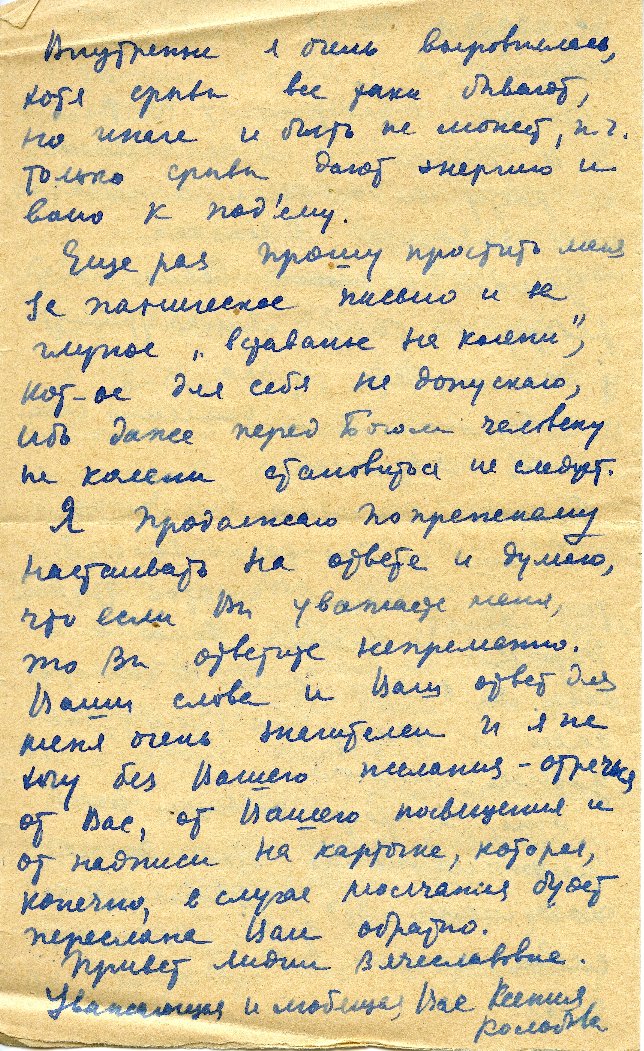 Внутренне я очень выровнялась,
хотя срывы все таки бывают,
но иначе и быть не может, п.ч.
только срывы дают энергию и
волю к под'ему.
Еще раз прошу простить меня
за паническое письмо и за
глупое „вставанье на колени",
кот-ое для себя не допускаю,
ибо даже перед Богом человеку
на колени становиться не следует.
Я продолжаю попрежнему
настаивать на ответе и думаю,
что если Вы уважаете меня,
то Вы ответите непременно.
Ваши слова и Ваш ответ для
меня очень значителен и я не
хочу без Вашего желания – отречься
от Вас, от Вашего посвящения и
от надписи на карточке, которая,
конечно, в случае молчания будет
переслана Вам обратно.
Привет Лидии Вячеславовне.
Уважающая и любящая Вас Ксения
Колобова